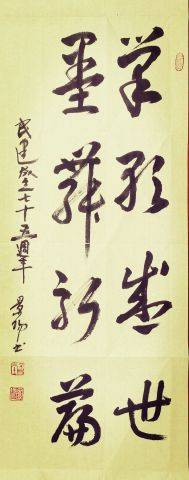 筆歌盛世
墨舞新篇
民建成立七十五週年
书